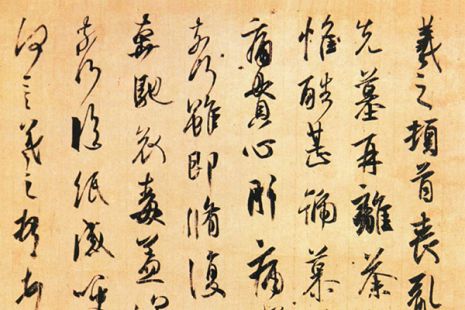 羲之頓首喪亂
先墓再離荼
惟酷甚號慕
痛貫心肝痛
柰何雖即脩復
奔馳哀毒益
柰何臨紙感哽
何言羲之頓首